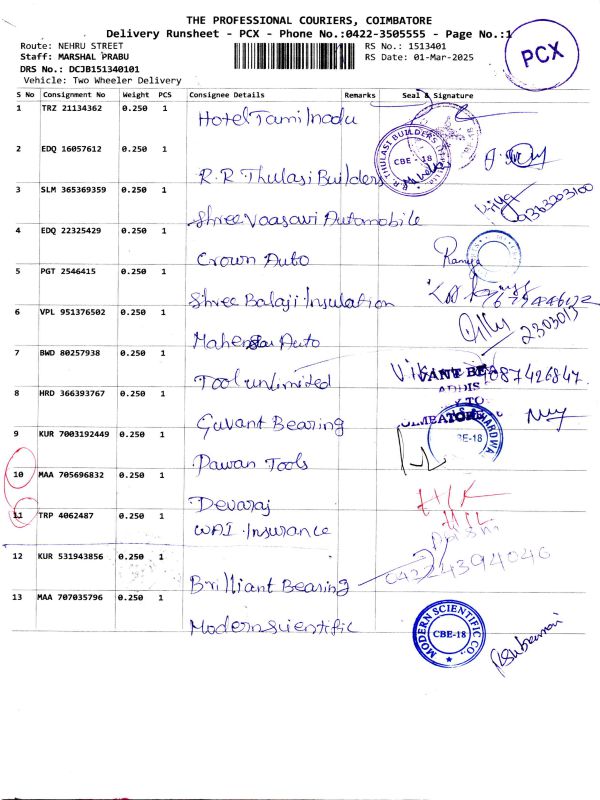 THE PROFESSIONAL COURIERS, COIMBATORE
Delivery Runsheet - PCX - Phone No.:0422-3505555 - Page No.:1
PCX
Route: NEHRU STREET
RS No.: 1513401
Staff: MARSHAL PRABU
RS Date: 01-Mar-2025
DRS No.: DCJB151340101
Vehicle: Two Wheeler Delivery
S No Consignment No Weight PCS Consignee Details Remarks Seal & Signature
1 TRZ 21134362 0.250 1 Hotel Tamilnadu
2 EDQ 16057612 0.250 1 R.R Thulasi Builders
THULASI BUILDERS
CBE - 18
3 SLM 365369359 0.250 1 Shree Vaasavi Automobile
9363203100
4 EDQ 22325429 0.250 1 Crown Auto
Ramya
5 PGT 2546415 0.250 1 Shree Balaji Insulation
6 VPL 951376502 0.250 1 Auto
2303015
7 BWD 80257938 0.250 1 Tool unlimited
8 HRD 366393767 0.250 1 Guvant Bearing
VANT BE
ADDIS
Y TO
9 KUR 7003192449 0.250 1 Pawan Tools
BE-18
10 MAA 705696832 0.250 1 Devaraj
11 TRP 4062487 0.250 1 WAI Insurance
12 KUR 531943856 0.250 1 Brilliant Bearing
0422 4394046
13 MAA 707035796 0.250 1 Modern scientific
MODERN SCIENTIFIC CO.,
CBE-18